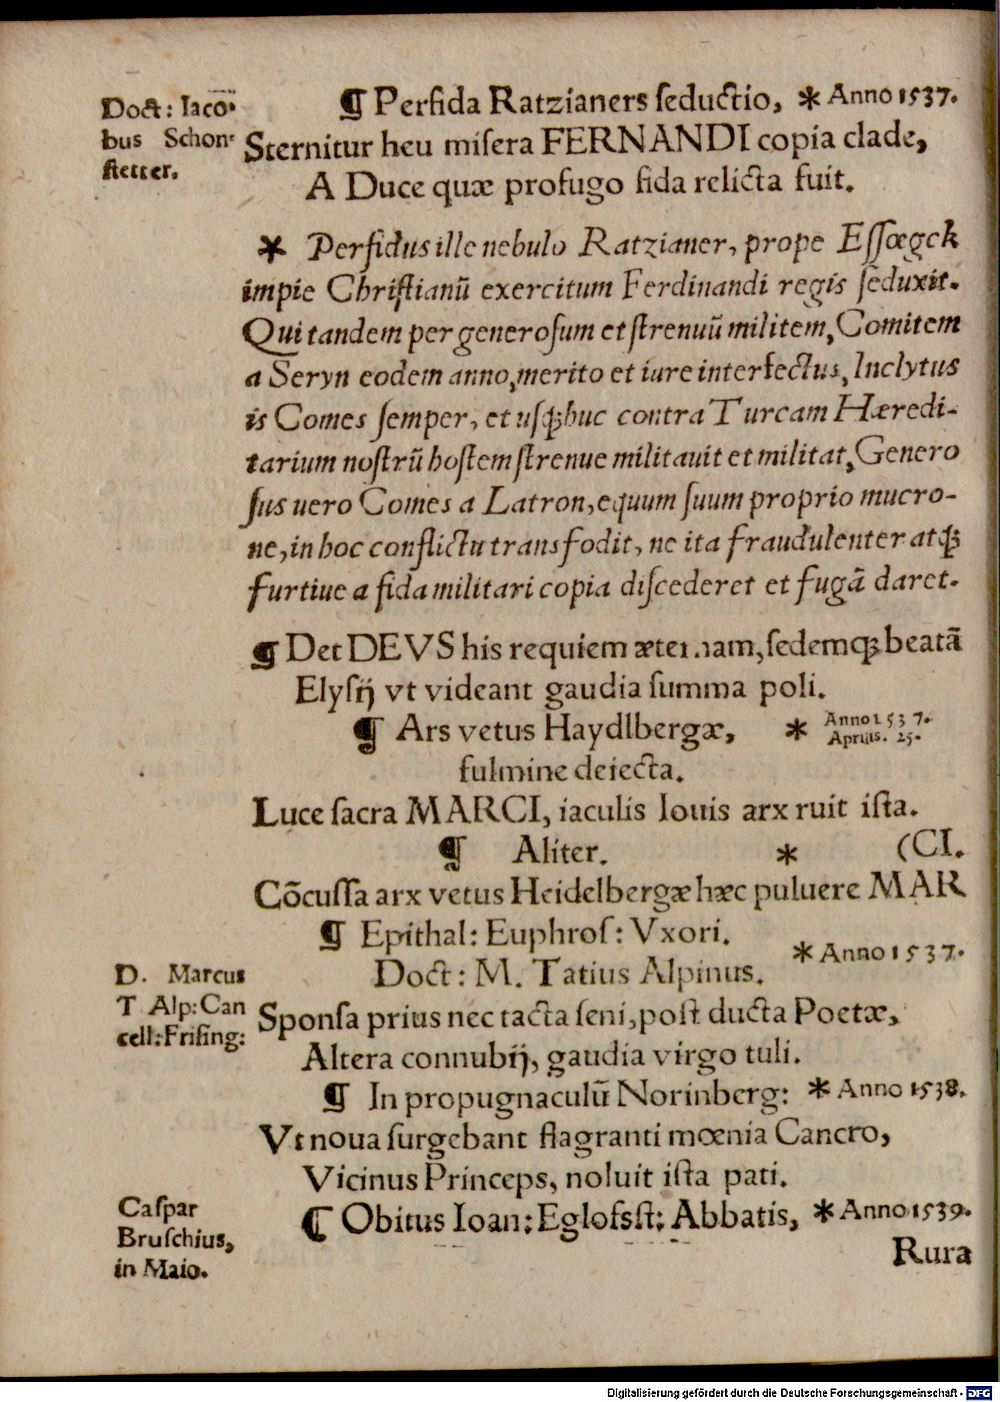 Doct: Iaco-
bus Schon-
stetter.
¶ Perfida Ratzianers seductio, * Anno 1537.
Sternitur heu misera FERNANDI copia clade,
A Duce quæ profugo fida relicta fuit.
* Perfidus ille nebulo Ratzianer, prope Essœgck
impie Christianū exercitum Ferdinandi regis seduxit.
Qui tandem per generosum et strenuū militem, Comitem
a Seryn eodem anno, merito et iure interfectus, Inclytus
is Comes semper, et usq; huc contra Turcam Hæredi-
tarium nostrū hostem strenue militauit et militat, Genero
sus uero Comes a Latron, equum suum proprio mucro-
ne, in hoc conflictu transfodit, ne ita fraudulenter atq;
furtiue a fida militari copia discederet et fugā daret.
¶ Det DEVS his requiem æternam, sedemq; beatā
Elysij vt videant gaudia summa poli.
¶ Ars vetus Haydlbergæ, * Anno 1537.
Aprilis. 25.
fulmine deiecta.
Luce sacra MARCI, iaculis Iouis arx ruit ista.
¶ Aliter. * (CI.
Cōcussa arx vetus Heidelbergæ hæc puluere MAR
¶ Epithal: Euphros: Vxori.
Doct: M. Tatius Alpinus. * Anno 1537.
D. Marcus
T Alp: Can
cell: Frising:
Sponsa prius nec tacta seni, post ducta Poetæ,
Altera connubij, gaudia virgo tuli.
¶ In propugnaculū Norinberg: * Anno 1538.
Vt noua surgebant flagranti mœnia Cancro,
Vicinus Princeps, noluit ista pati.
Caspar
Bruschius,
in Maio.
¶ Obitus Ioan: Eglofsst: Abbatis, * Anno 1539.
Rura
Digitalisierung gefördert durch die Deutsche Forschungsgemeinschaft - DFG